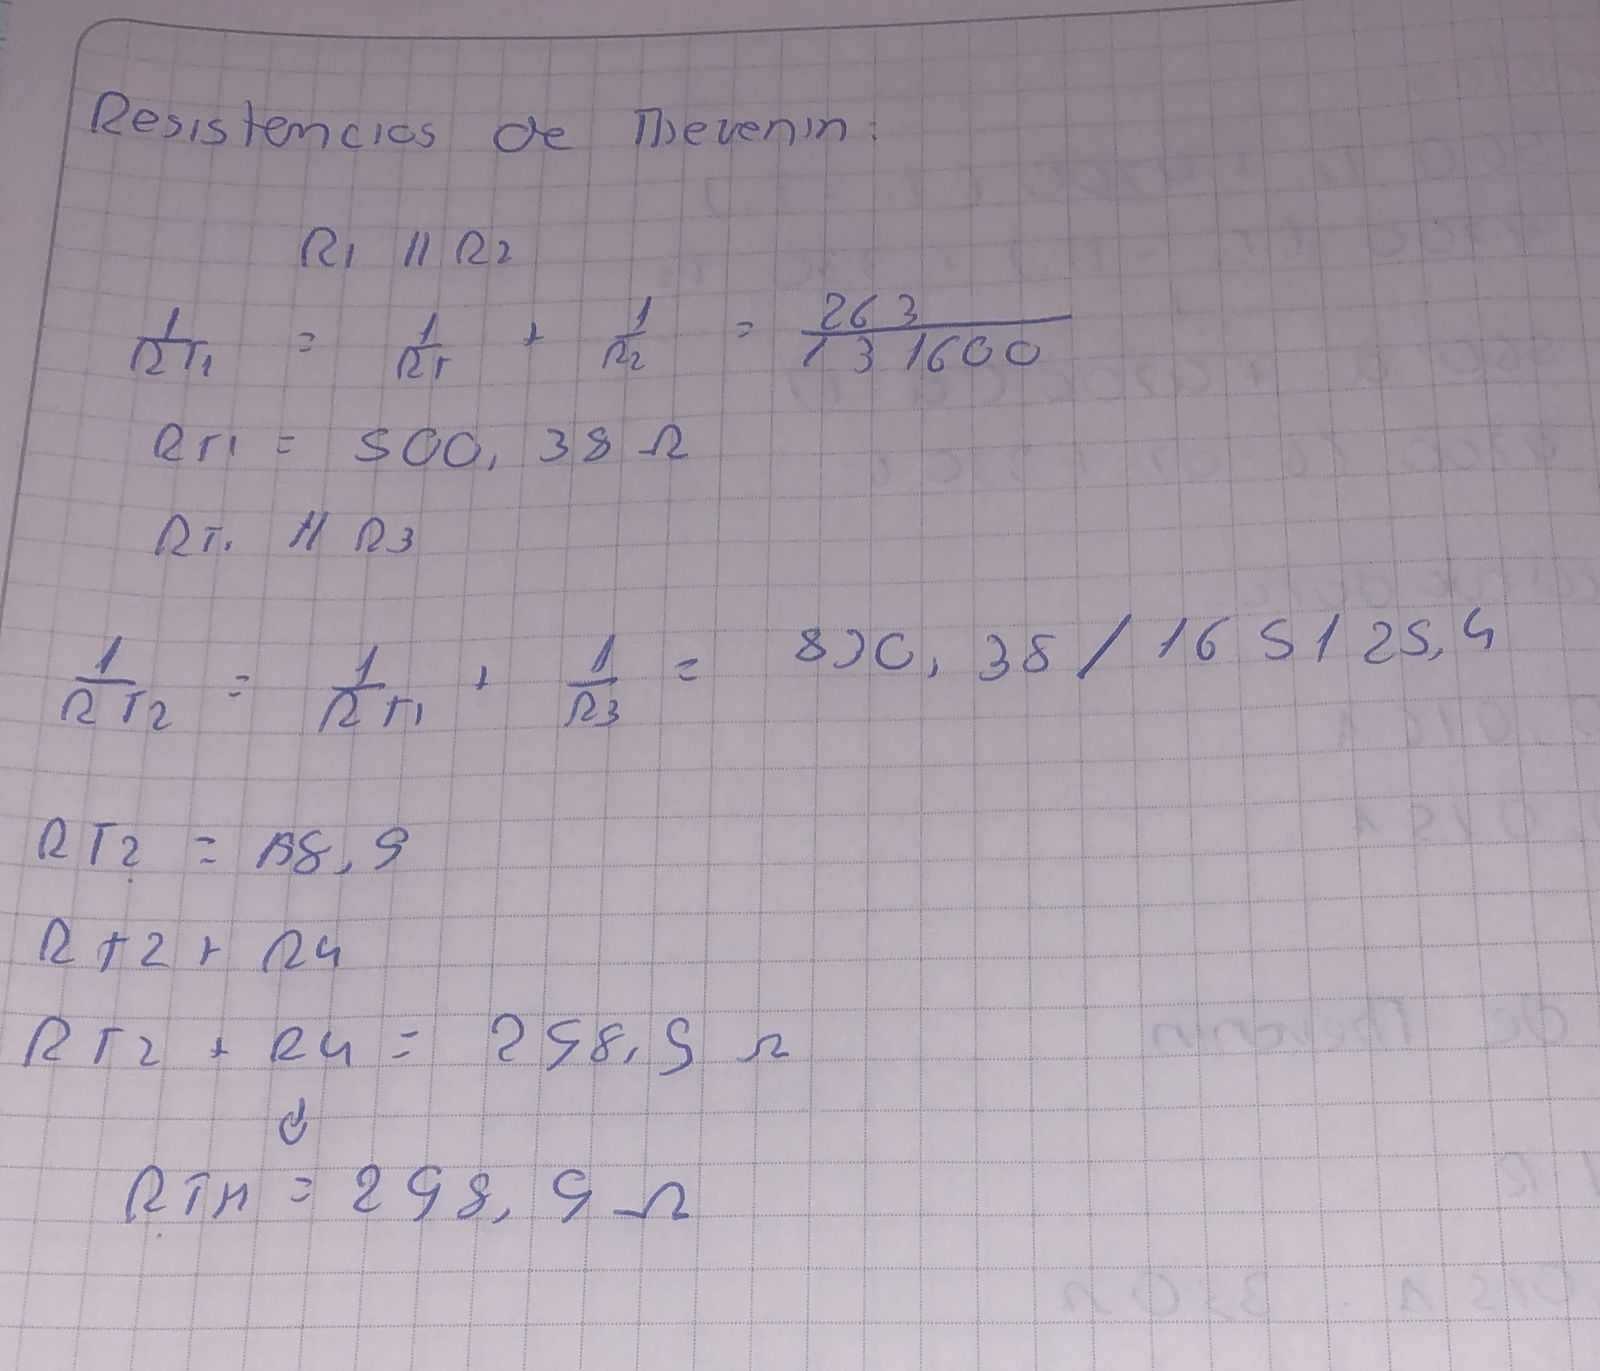 Resistencias de Thevenin:
R1 // R2
1/RT1 = 1/R1 + 1/R2 = 263/131600
RT1 = 500,38 Ω
RT1 // R3
1/RT2 = 1/RT1 + 1/R3 = 830,38 / 165125,4
RT2 = 198,9
RT2 + R4
RT2 + R4 = 298,9 Ω
RTH = 298,9 Ω